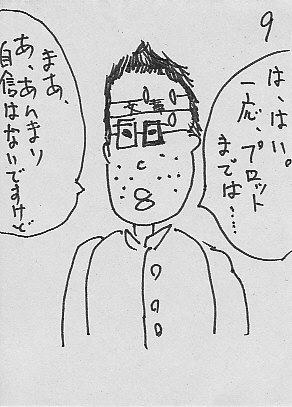 9
は、はい。
一応、プロット
までは……
まあ、
あ、あんまり
自信はないですけど